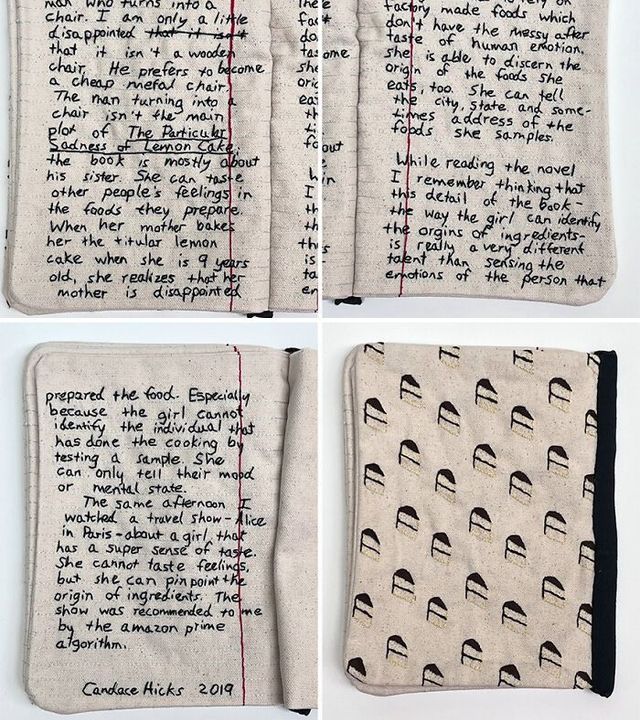 man who turns into a
chair. I am only a little
disappointed that it isn't
that it isn't a wooden
chair. He prefers to become
a cheap metal chair.
The man turning into a
chair isn't the main
plot of The Particular
Sadness of Lemon Cake,
the book is mostly about
his sister. She can taste
other people's feelings in
the foods they prepare.
When her mother bakes
her the titular lemon
cake when she is 9 years
old, she realizes that her
mother is disappointed
factory made foods which
don't have the messy after
taste of human emotion.
she is able to discern the
origin of the foods she
eats, too. She can tell
the city, state and some-
times address of the
foods she samples.
While reading the novel
I remember thinking that
this detail of the book-
the way the girl can identify
the orgins of ingredients-
is really a very different
talent than sensing the
emotions of the person that
prepared the food. Especially
because the girl cannot
identify the individual that
has done the cooking by
testing a sample. She
can only tell their mood
or mental state.
The same afternoon I
watched a travel show-Alice
in Paris-about a girl that
has a super sense of taste.
She cannot taste feelings,
but she can pinpoint the
origin of ingredients. The
show was recommended to me
by the amazon prime
algorithm.
Candace Hicks 2019